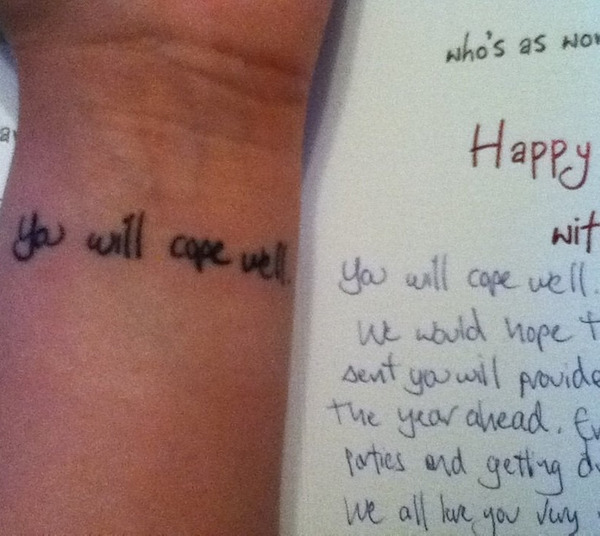 You will cope well.
who's as wor
Happy
wit
You will cope well.
We would hope t
sent you will provide
the year ahead. Ev
parties and getting d
We all love you very